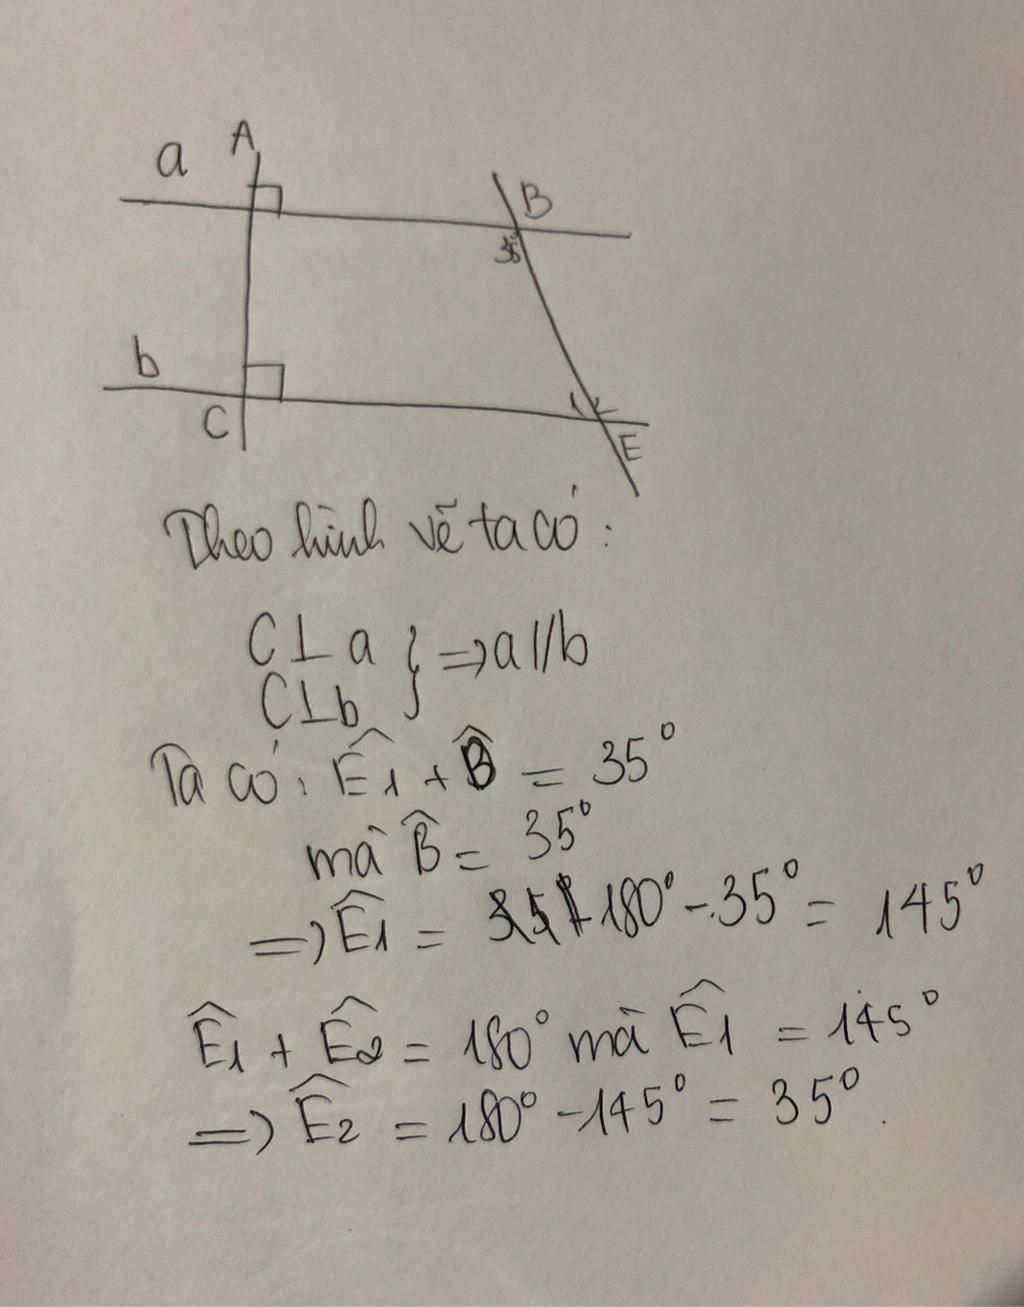 A
a
B
35°
b
C
1 2
E
Theo hình vẽ ta có :
C⊥a
C⊥b } ⇒ a//b
Ta có: Ê1 + B̂ = 35°
mà B̂ = 35°
⇒ Ê1 = 180° - 35° = 145°
Ê1 + Ê2 = 180° mà Ê1 = 145°
⇒ Ê2 = 180° - 145° = 35°.